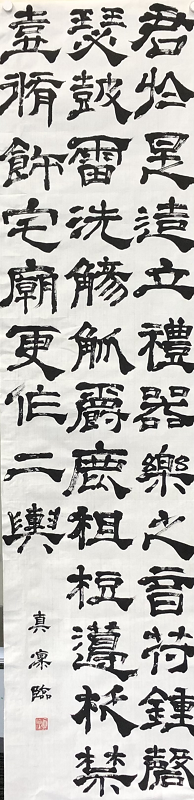 君於是造立禮器樂之音苻鍾磬
瑟鼓雷洗觴觚爵鹿柤梪籩柉禁
壺脩飾宅廟更作二輿
真凜臨